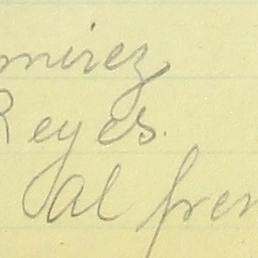 mirez
Reyes.
al fren